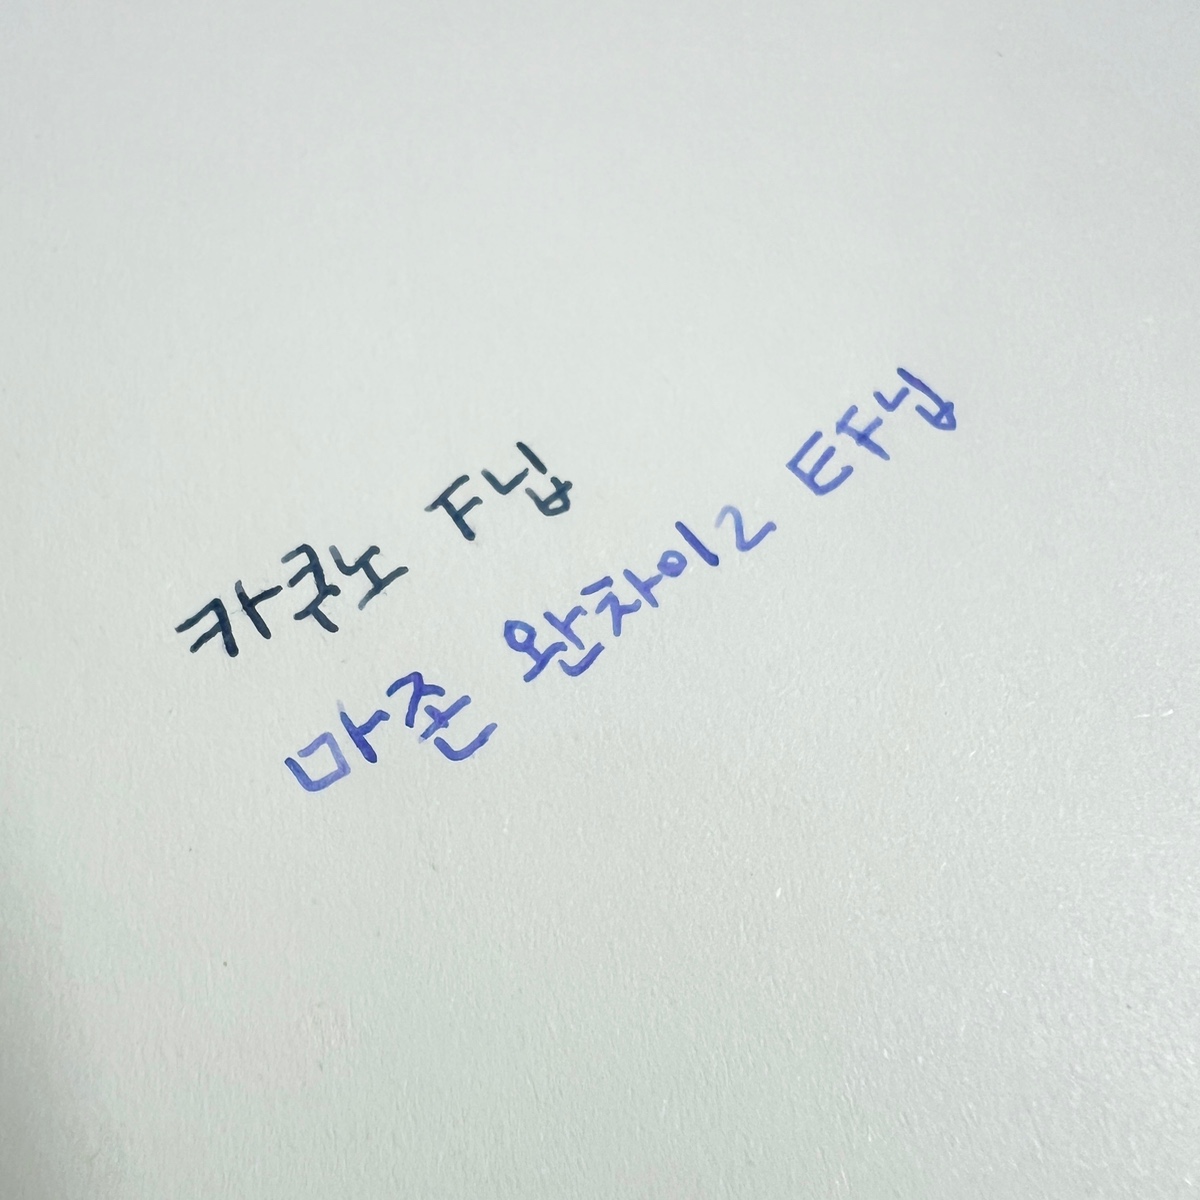 카쿠노 F닙
마존 완차이2 EF닙